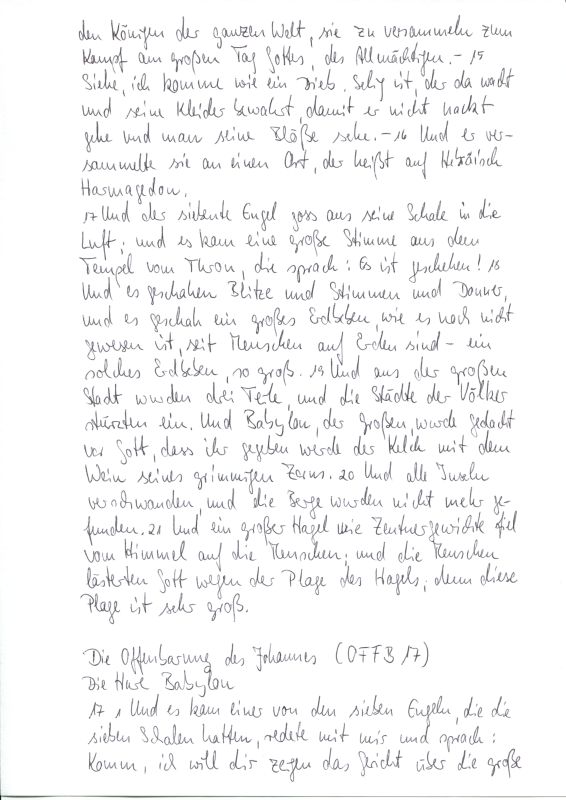 den Königen der ganzen Welt, sie zu versammeln zum
Kampf am großen Tag Gottes, des Allmächtigen. – 15
Siehe, ich komme wie ein Dieb. Selig ist, der da wacht
und seine Kleider bewahrt, damit er nicht nackt
gehe und man seine Blöße sehe. – 16 Und er ver-
sammelte sie an einen Ort, der heißt auf Hebräisch
Harmagedon.
17 Und der siebente Engel goss aus seine Schale in die
Luft; und es kam eine große Stimme aus dem
Tempel vom Thron, die sprach: Es ist geschehen! 18
Und es geschahen Blitze und Stimmen und Donner,
und es geschah ein großes Erdbeben, wie es noch nicht
gewesen ist, seit Menschen auf Erden sind – ein
solches Erdbeben, so groß. 19 Und aus der großen
Stadt wurden drei Teile, und die Städte der Völker
stürzten ein. Und Babylon, der großen, wurde gedacht
vor Gott, dass ihr gegeben werde der Kelch mit dem
Wein seines grimmigen Zorns. 20 Und alle Inseln
verschwanden, und die Berge wurden nicht mehr ge-
funden. 21 Und ein großer Hagel wie Zentnergewichte fiel
vom Himmel auf die Menschen; und die Menschen
lästerten Gott wegen der Plage des Hagels; denn diese
Plage ist sehr groß.
Die Offenbarung des Johannes (OFFB 17)
Die Hure Babylon
17 1 Und es kam einer von den sieben Engeln, die die
sieben Schalen hatten, redete mit mir und sprach:
Komm, ich will dir zeigen das Gericht über die große